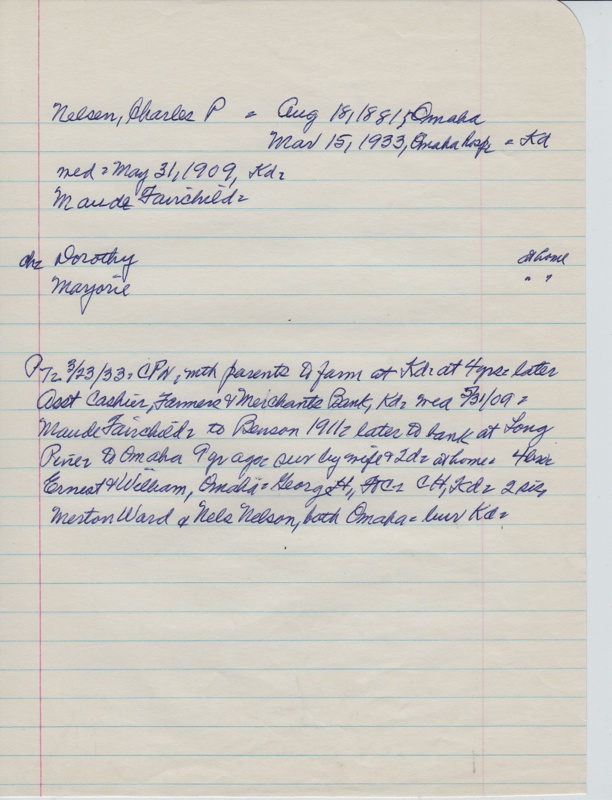 Nelsen, Charles P = Aug 18, 1881; Omaha
Mar 15, 1933, Omaha hosp = Kd
med = May 31, 1909, Kd =
Maude Fairchild =
ch = Dorothy at home
Marjorie " "
P Tz 3/23/33 = CPN, with parents to farm at Kd = at 4 yrs = later
Asst Cashier, Farmers & Merchants Bank, Kd = med 5/31/09 =
Maude Fairchild = to Benson 1911 = later to bank at Long
Pine = to Omaha 9 yr ago = sur by wife & 2d = at home = 4 bro =
Ernest & William, Omaha = George H, CH, Kd = 2 sis,
Merton Ward & Nels Nelson, both Omaha = bur Kd =